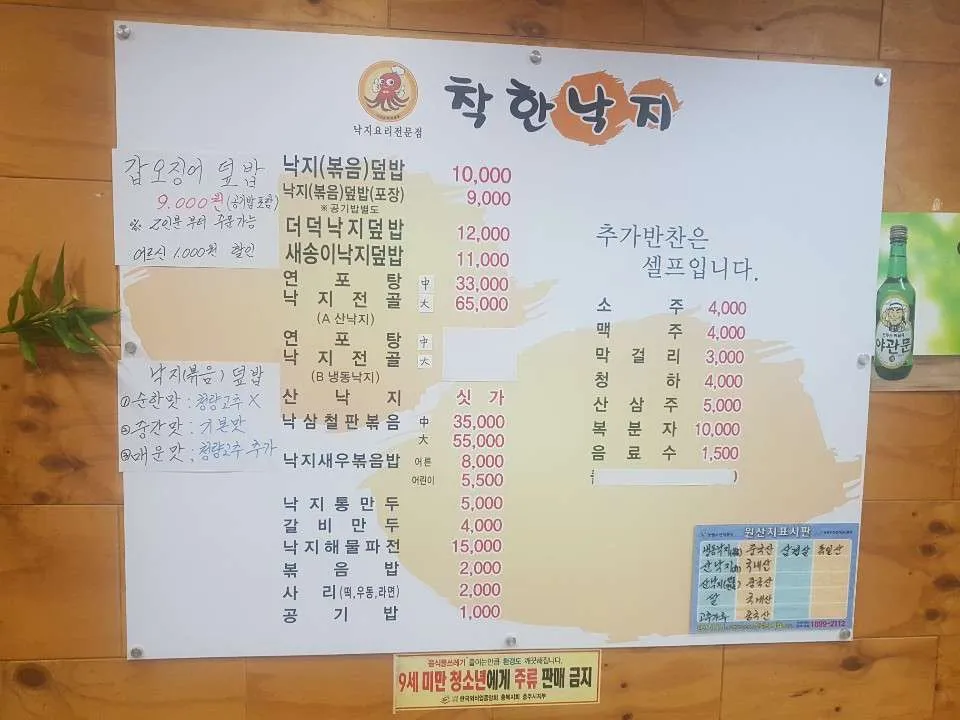 착한낙지
낙지요리전문점
갑오징어 덮밥
9.000원 (공기밥포함)
※ 2인분부터 주문가능
어르신 1.000원 할인
낙지(볶음)덮밥 10,000
낙지(볶음)덮밥(포장) 9,000
※공기밥별도
더덕낙지덮밥 12,000
새송이낙지덮밥 11,000
연포탕 中 33,000
낙지전골 大 65,000
(A 산낙지)
연포탕 中
낙지전골 大
(B 냉동낙지)
산낙지 싯가
낙삼철판볶음 中 35,000
大 55,000
낙지새우볶음밥 어른 8,000
어린이 5,500
낙지통만두 5,000
갈비만두 4,000
낙지해물파전 15,000
볶음밥 2,000
사리(떡,우동,라면) 2,000
공기밥 1,000
낙지(볶음) 덮밥
①순한맛 : 청량고추 X
②중간맛 : 기본맛
③매운맛 : 청량고추 추가
추가반찬은
셀프입니다.
소주 4,000
맥주 4,000
막걸리 3,000
청하 4,000
산삼주 5,000
복분자 10,000
음료수 1,500
야관문
원산지표시판
냉동낙지 중국산 삼겹살 독일산
산낙지 국내산
산낙지 중국산
쌀 국내산
고추가루 중국산
1899-2112
음식물쓰레기 줄이는만큼 환경도 깨끗해집니다.
9세 미만 청소년에게 주류 판매 금지
한국외식업중앙회 충북지회 충주시지부